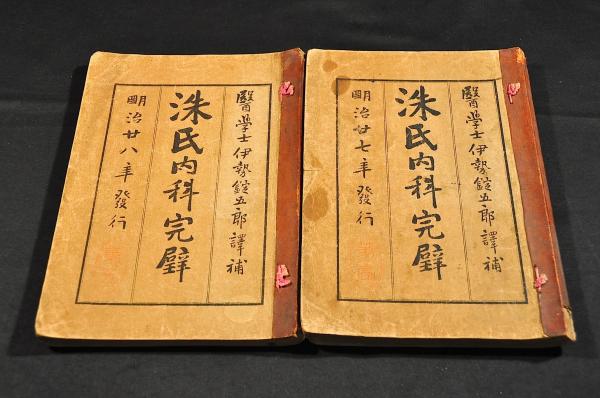 醫學士伊勢錠五郎譯補
洙氏内科完璧
明治廿七年發行
醫學士伊勢錠五郎譯補
洙氏内科完璧
明治廿八年發行